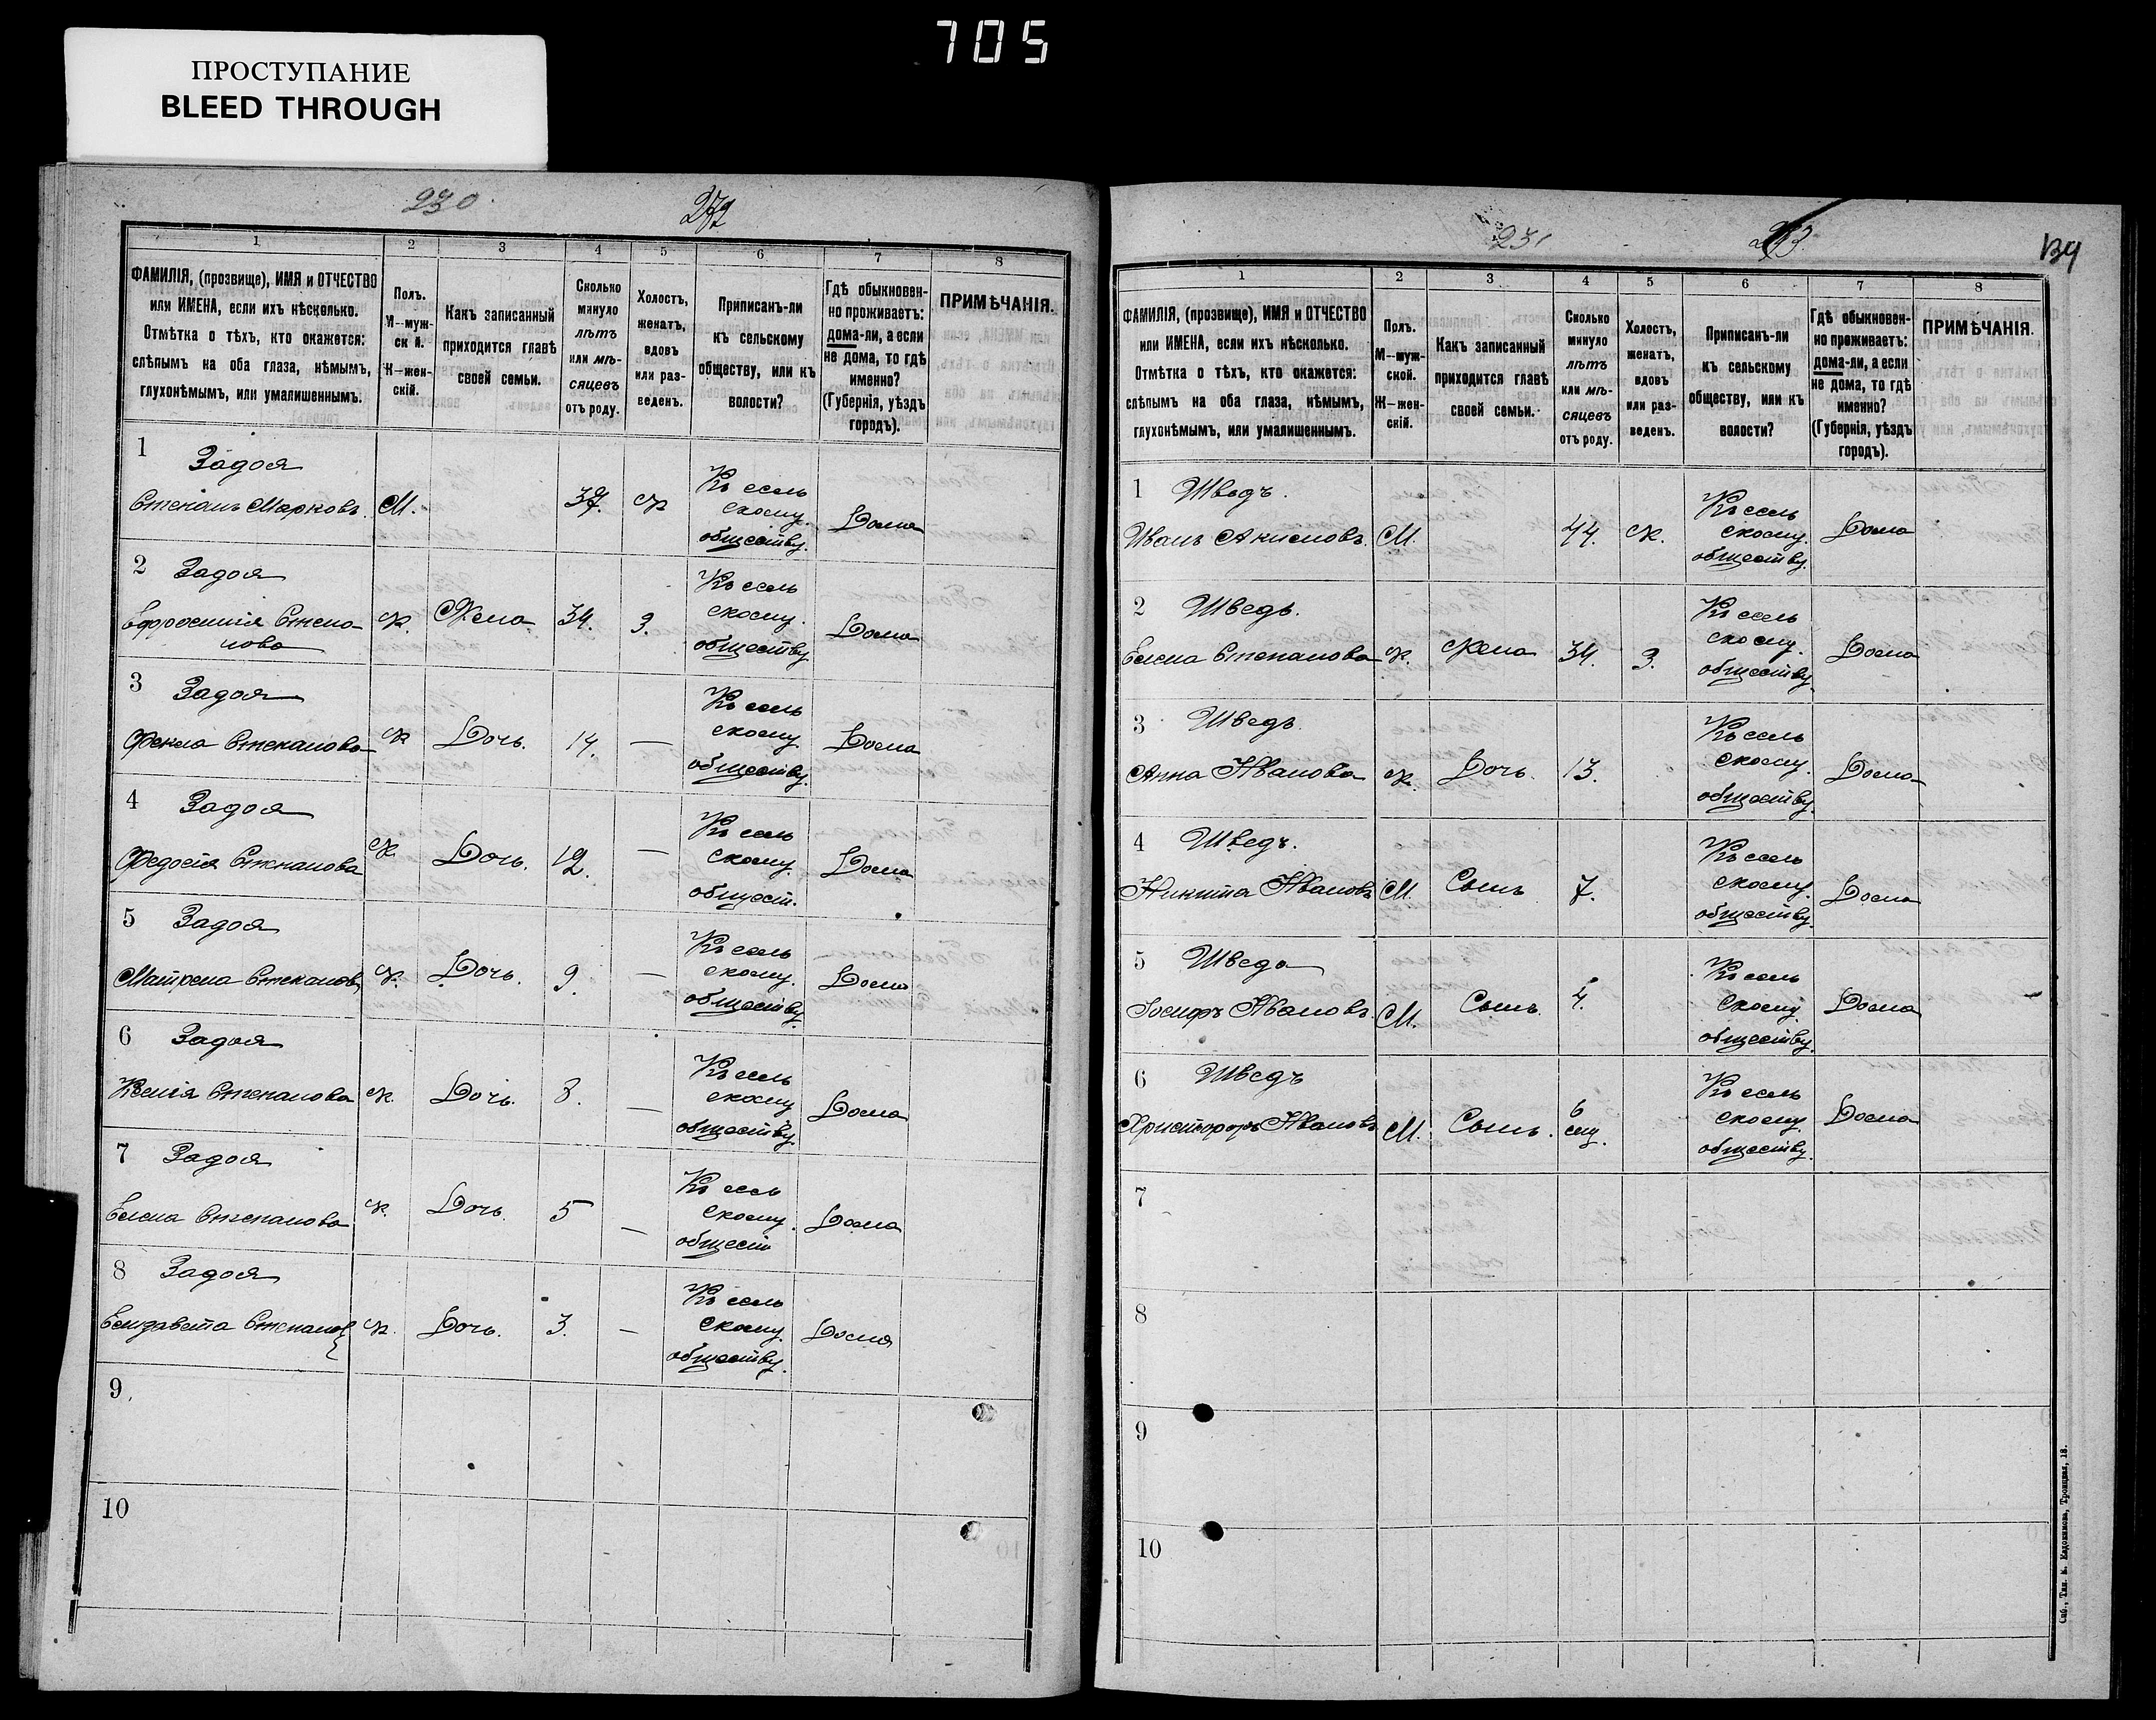 705
ПРОСТУПАНИЕ
BLEED THROUGH
230
1 2 3 4 5 6 7 8
ФАМИЛІЯ, (прозвище), ИМЯ и ОТЧЕСТВО
или ИМЕНА, если ихъ нѣсколько.
Отмѣтка о тѣхъ, кто окажется:
слѣпымъ на оба глаза, нѣмымъ,
глухонѣмымъ, или умалишеннымъ.
Полъ.
М—муж-
ск й.
Ж—жен-
скій.
Какъ записанный
приходится главѣ
своей семьи.
Сколько
минуло
лѣтъ
или мѣ-
сяцевъ
отъ роду.
Холостъ,
женатъ,
вдовъ
или раз-
веденъ.
Приписанъ-ли
къ сельскому
обществу, или къ
волости?
Гдѣ обыкновен-
но проживаетъ:
дома-ли, а если
не дома, то гдѣ
именно?
(Губернія, уѣздъ
городъ).
ПРИМѢЧАНІЯ.
1 Задоя
Степанъ Марковъ. М. 37. ж Къ сель
скому
обществу. Дома
2 Задоя
Ефросинія Степа-
нова ж. Жена 34. З. Къ сель
скому.
обществу Дома
3 Задоя
Фекла Степанова ж Дочь. 14. — Къ сель
скому
обществу. Дома
4 Задоя
Федосія Степанова ж Дочь. 12. — Къ сель
скому.
общест. Дома
5 Задоя
Матрена Степанов ж. Дочь. 9. — Къ сель
скому.
обществу. Дома
6 Задоя
Ксенія Степанова ж. Дочь. 8. — Къ сель
скому
обществу. Дома
7 Задоя
Елена Степанова ж. Дочь. 5 — Къ сель
скому.
общест Дома
8 Задоя
Елизавета Степанов ж. Дочь. 3. — Къ сель
скому.
обществу. Дома
9
10
231
139
1 2 3 4 5 6 7 8
ФАМИЛІЯ, (прозвище), ИМЯ и ОТЧЕСТВО
или ИМЕНА, если ихъ нѣсколько.
Отмѣтка о тѣхъ, кто окажется:
слѣпымъ на оба глаза, нѣмымъ,
глухонѣмымъ, или умалишеннымъ.
Полъ.
М—муж-
ской.
Ж—жен-
скій.
Какъ записанный
приходится главѣ
своей семьи.
Сколько
минуло
лѣтъ
или мѣ-
сяцевъ
отъ роду.
Холостъ,
женатъ,
вдовъ
или раз-
веденъ.
Приписанъ-ли
къ сельскому
обществу, или къ
волости?
Гдѣ обыкновен-
но проживаетъ:
дома-ли, а если
не дома, то гдѣ
именно?
(Губернія, уѣздъ
городъ).
ПРИМѢЧАНІЯ.
1 Шведъ.
Иванъ Акимовъ. М. 44. ж. Къ сель
скому.
обществу. Дома
2 Шведъ.
Елена Степанова ж. Жена 34. З. Къ сель
скому.
обществу. Дома
3 Шведъ
Анна Иванова ж. Дочь. 13. Къ сель
скому.
обществу. Дома
4 Шведъ.
Никита Ивановъ М. Сынъ 7. Къ сель
скому.
обществу. Дома
5 Шведа
Іосифъ Ивановъ. М. Сынъ. 4. Къ сель
скому.
обществу. Дома
6 Шведъ
Христофоръ Ивановъ М. Сынъ. 6
Къ сель
скому.
обществу. Дома
7
8
9
10
Спб., Тип. М. Евдокимова, Троицкая, 18.